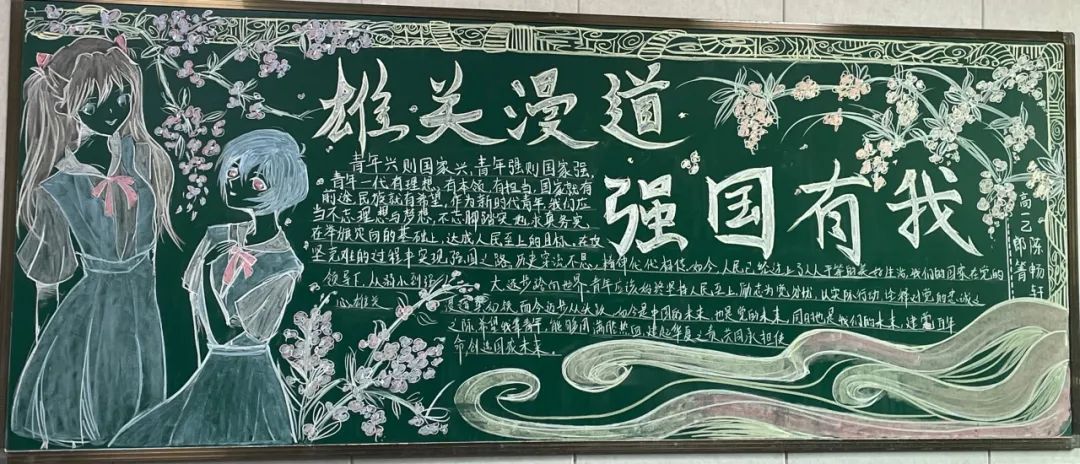 雄关漫道
强国有我
青年兴则国家兴,青年强则国家强,
青年一代有理想,有本领,有担当,国家就有
前途,民族就有希望。作为新时代青年,我们应
当不忘理想与梦想,不忘脚踏实地求真务实,
的基础上,达成人民至上的目标。在攻
坚克难的过程中实现。强国之路,历史 不息,精神代代相传,如今,人民已经过上了人人平等的美好生活,我们的国家在党的
领导下,从弱小到强大,逐步跨向世界,青年应该始终坚持人民至上,励志为党分忧,以实际行动,诠释对党的忠诚之
心。雄关
漫道真如铁,而今迈步从头越,如今是中国的未来,也是党的未来,同时也是我们的未来,建 百年
之际,希望我辈青年,能够用满腔热血,建起华夏之 ,共同承担使
命,创造国家未来。
高一乙
陈畅轩
郎箐